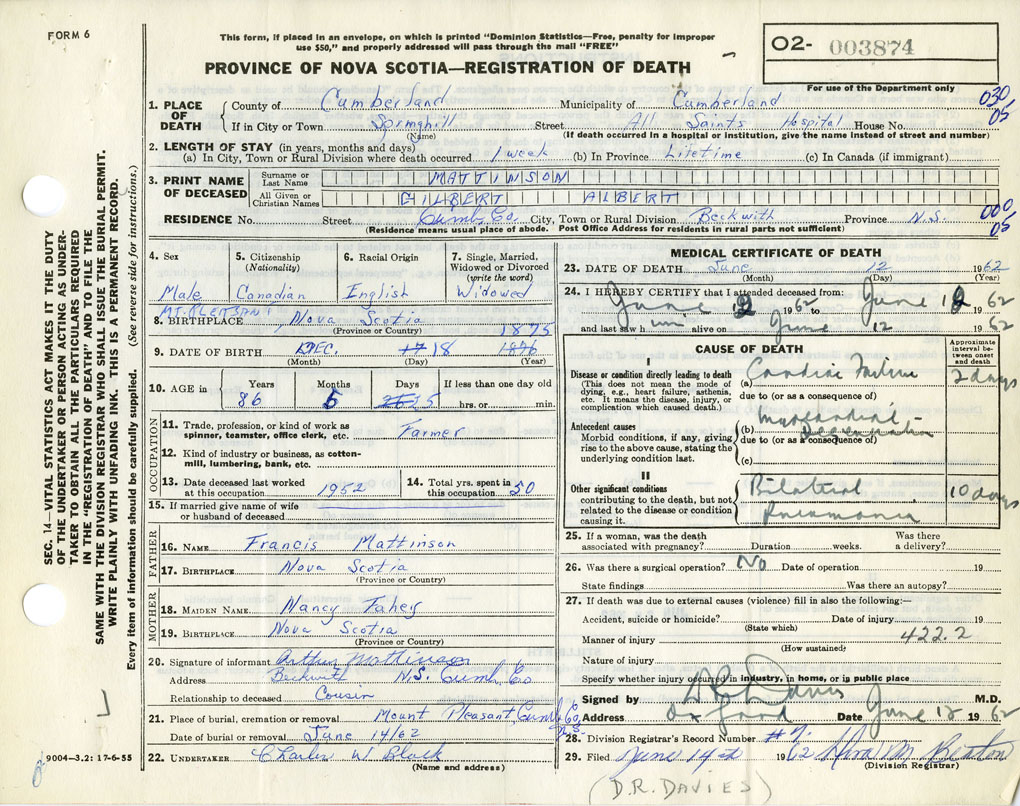 FORM 6
This form, if placed in an envelope, on which is printed "Dominion Statistics—Free, penalty for improper
use $50," and properly addressed will pass through the mail "FREE"
PROVINCE OF NOVA SCOTIA—REGISTRATION OF DEATH
O2- 003874
For use of the Department only
1. PLACE OF DEATH County of Cumberland Municipality of Cumberland 030
If in City or Town Springhill Street All Saints Hospital House No. 05
(Name) (If death occurred in a hospital or institution, give the name instead of street and number)
2. LENGTH OF STAY (in years, months and days)
(a) In City, Town or Rural Division where death occurred 1 week (b) In Province Lifetime (c) In Canada (if immigrant)
3. PRINT NAME OF DECEASED Surname or Last Name MATTINSON
All Given or Christian Names GILBERT ALBERT
RESIDENCE No. Street Cumb. Co. City, Town or Rural Division Beckwith Province N.S. 000 05
(Residence means usual place of abode. Post Office Address for residents in rural parts not sufficient)
4. Sex 5. Citizenship (Nationality) 6. Racial Origin 7. Single, Married, Widowed or Divorced (write the word)
Male Canadian English Widowed
MT. PLEASANT
8. BIRTHPLACE Nova Scotia
(Province or Country) 1875
9. DATE OF BIRTH DEC. 17 18 1876
(Month) (Day) (Year)
10. AGE in Years Months Days If less than one day old
86 5 26 25 hrs. or min.
OCCUPATION
11. Trade, profession, or kind of work as
spinner, teamster, office clerk, etc. Farmer
12. Kind of industry or business, as cotton-
mill, lumbering, bank, etc.
13. Date deceased last worked at this occupation 1952 14. Total yrs. spent in this occupation 50
15. If married give name of wife
or husband of deceased
FATHER
16. NAME Francis Mattinson
17. BIRTHPLACE Nova Scotia
(Province or Country)
MOTHER
18. MAIDEN NAME Nancy Fahey
19. BIRTHPLACE Nova Scotia
(Province or Country)
20. Signature of informant Arthur Mattinson
Address Beckwith N.S. Cumb. Co
Relationship to deceased Cousin
21. Place of burial, cremation or removal Mount Pleasant, Cumb. Co. N.S.
Date of burial or removal June 14/62
22. UNDERTAKER Charles W Black
(Name and address)
MEDICAL CERTIFICATE OF DEATH
23. DATE OF DEATH June 12 1962
(Month) (Day) (Year)
24. I HEREBY CERTIFY that I attended deceased from:
June 1962 to June 12 1962
and last saw him alive on June 12 1962
CAUSE OF DEATH
Approximate interval between onset and death
I
Disease or condition directly leading to death
(This does not mean the mode of
dying, e.g., heart failure, asthenia,
etc. It means the disease, injury, or
complication which caused death.)
(a) Cardiac Failure 2 days
due to (or as a consequence of)
Antecedent causes
Morbid conditions, if any, giving
rise to the above cause, stating the
underlying condition last.
(b) Myocardial Degeneration
due to (or as a consequence of)
(c)
II
Other significant conditions
contributing to the death, but not
related to the disease or condition
causing it.
Bilateral 10 days
Pneumonia
25. If a woman, was the death Was there
associated with pregnancy? Duration weeks. a delivery?
26. Was there a surgical operation? No Date of operation 19
State findings Was there an autopsy?
27. If death was due to external causes (violence) fill in also the following:—
Accident, suicide or homicide? Date of injury 19
(State which)
Manner of injury 422.2
(How sustained)
Nature of injury
Specify whether injury occurred in industry, in home, or is public place
Signed by D R Davies M.D.
Address Oxford Date June 12 1962
28. Division Registrar's Record Number #7
29. Filed June 14th 1962
(Division Registrar)
(D.R. DAVIES)
SEC. 14—VITAL STATISTICS ACT MAKES IT THE DUTY
OF THE UNDERTAKER OR PERSON ACTING AS UNDER-
TAKER TO OBTAIN ALL THE PARTICULARS REQUIRED
IN THE "REGISTRATION OF DEATH" AND TO FILE THE
SAME WITH THE DIVISION REGISTRAR WHO SHALL ISSUE THE BURIAL PERMIT.
WRITE PLAINLY WITH UNFADING INK. THIS IS A PERMANENT RECORD.
Every item of information should be carefully supplied. (See reverse side for instructions.)
9004—3.2: 17-6-55